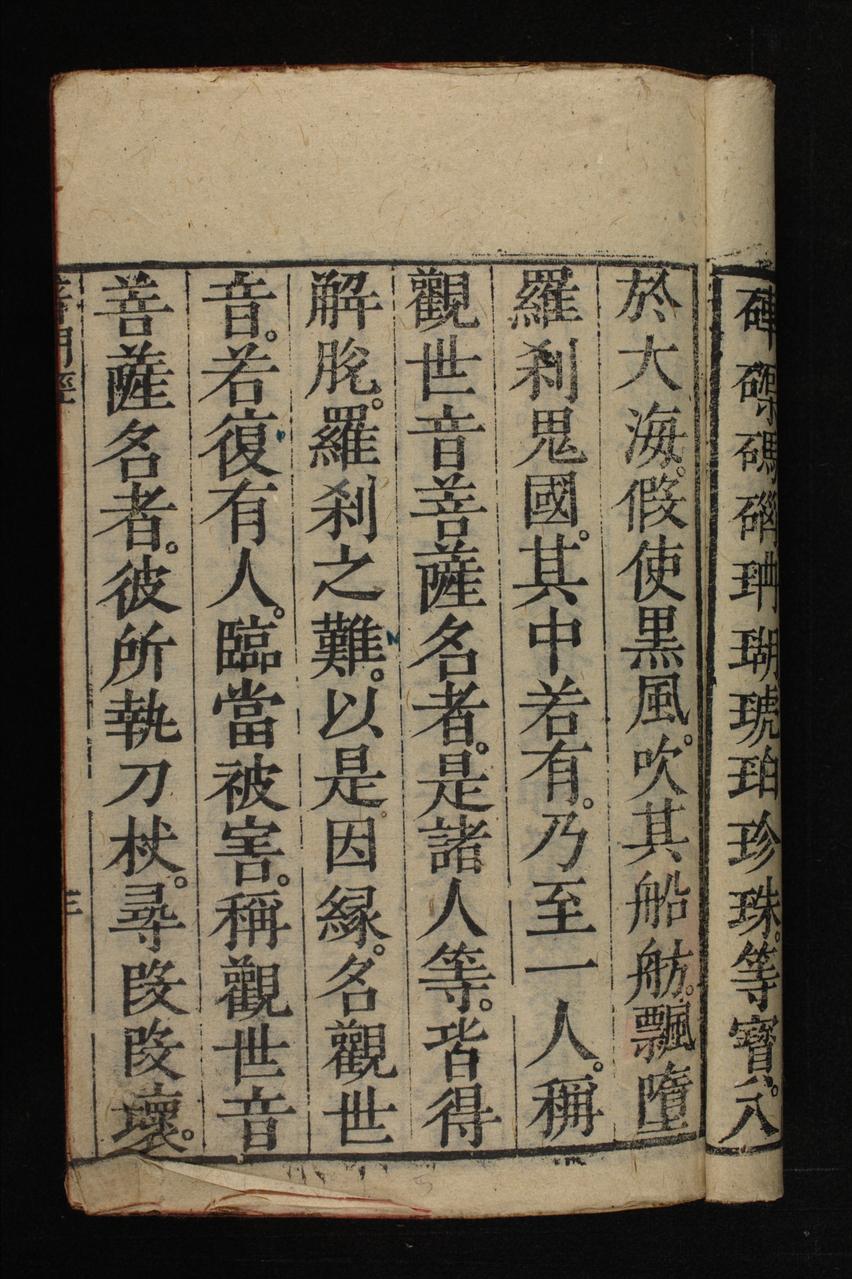 硨磲碼碯珊瑚琥珀珍珠。等寶。入
於大海。假使黒風。吹其船舫。飄墮
羅刹鬼國。其中若有。乃至一人。稱
觀世音菩薩名者。是諸人等。皆得
解脫。羅刹之難。以是。因緣。名觀世
音。若復有人。臨當被害。稱觀世音
菩薩名者。彼所執刀杖。尋段段壞。
普門經
三